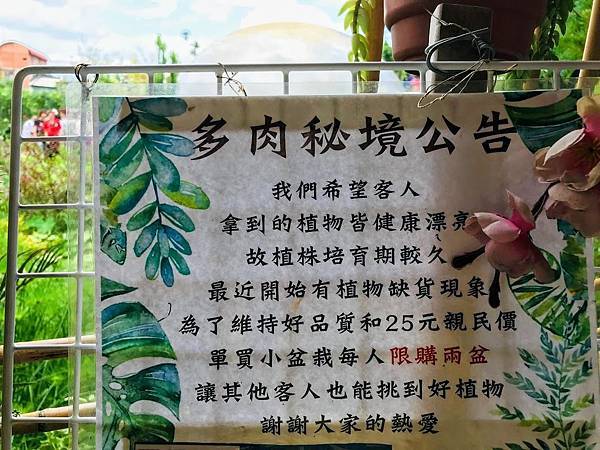 多肉秘境公告
我們希望客人
拿到的植物皆健康漂亮
故植株培育期較久
最近開始有植物缺貨現象
為了維持好品質和25元親民價
單買小盆栽每人限購兩盆
讓其他客人也能挑到好植物
謝謝大家的熱愛